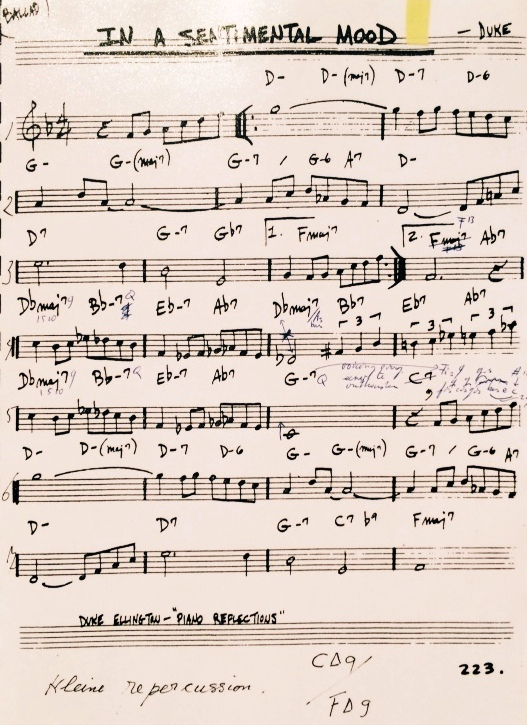 BALLAD
IN A SENTIMENTAL MOOD
- DUKE
D- D-(maj7) D-7 D-6
1
G- G-(maj7) G-7 / G-6 A7 D-
2
D7 G-7 Gb7 1. Fmaj7 2. Fmaj7 Ab7
3
Dbmaj7 Bb-7 Eb-7 Ab7 Dbmaj7 Bb7 Eb7 Ab7
3 3 3 3
Dbmaj7 Bb-7 Eb-7 Ab7 G-7 C7
5
D- D-(maj7) D-7 D-6 G- G-(maj7) G-7 / G-6 A7
6
D- D7 G-7 C7 b9 Fmaj7
DUKE ELLINGTON - "PIANO REFLECTIONS"
223.
Kleine repercussion.
C∆9/
F∆9